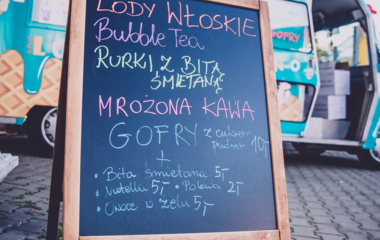 LODY WŁOSKIE
Bubble Tea
RURKI Z BITĄ
ŚMIETANĄ
MROŻONA KAWA
GOFRY z cukrem
pudrem 10,-
+
• Bita śmietana 5,-
• Nutella 5,- • Polewa 2,-
• Owoce w żelu 5,-
GOFRY